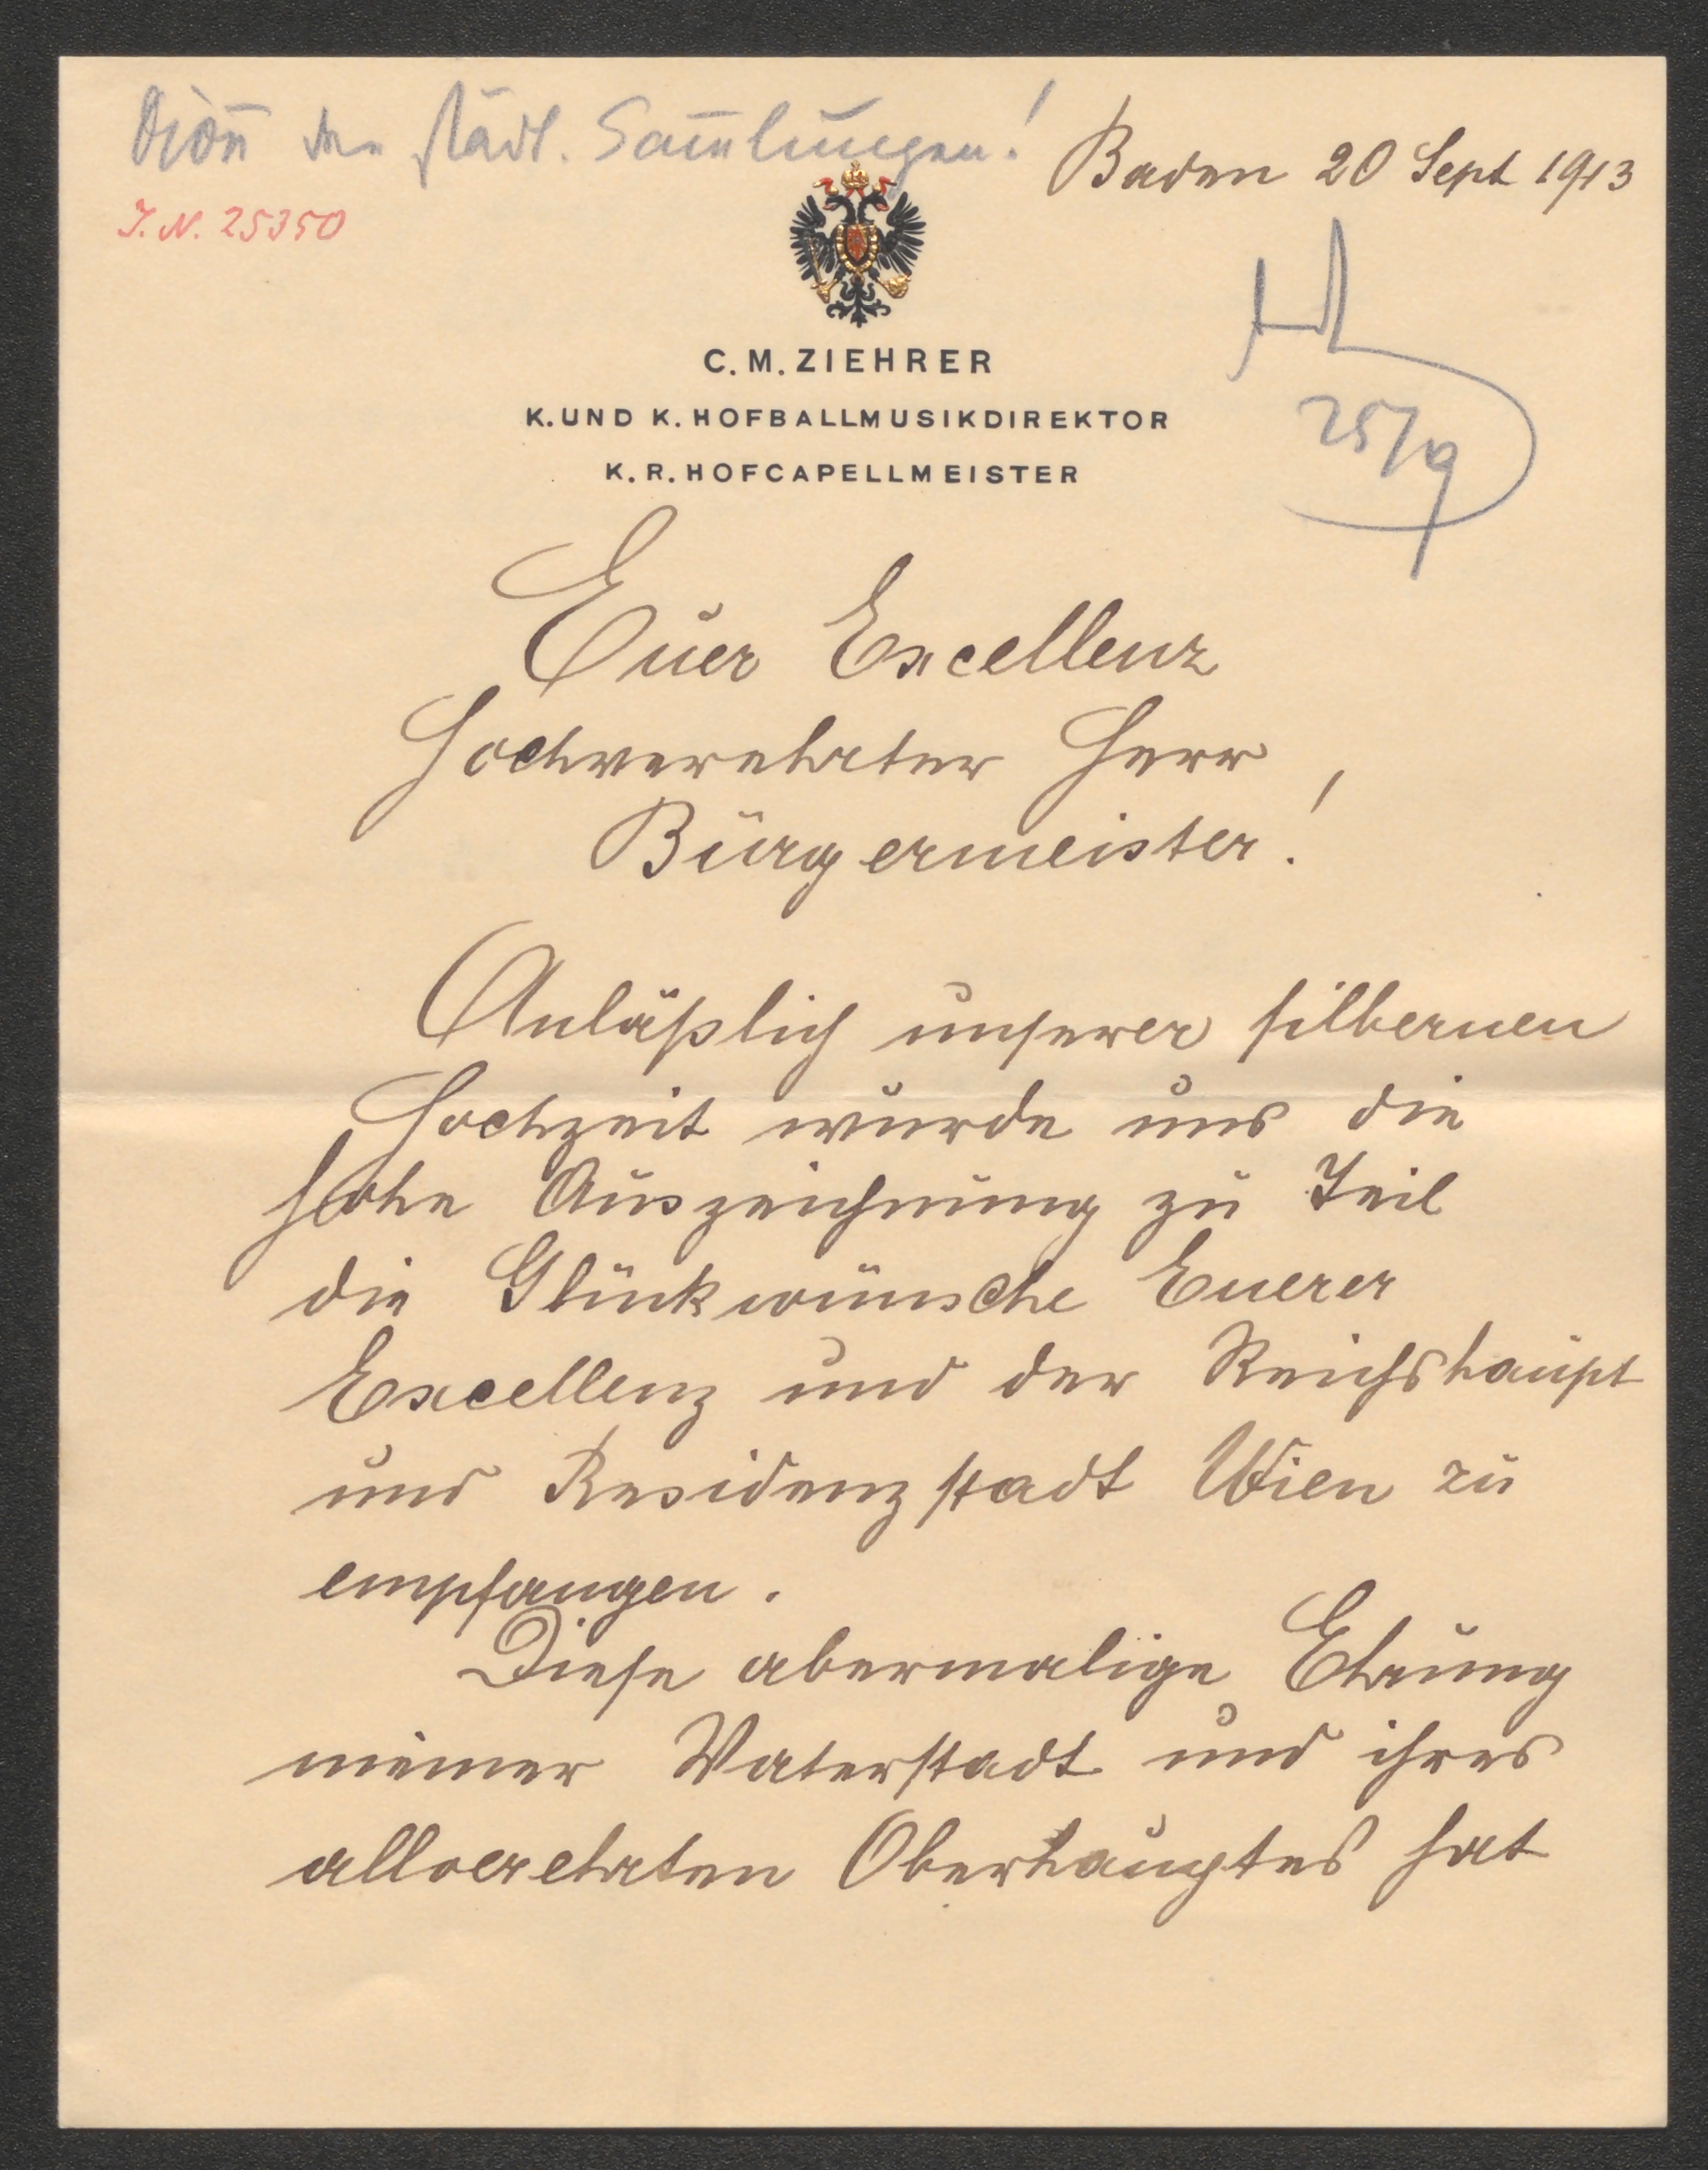 Dion der städt. Samlungen!
Baden 20 Sept 1913
J. N. 25350
C. M. ZIEHRER
25/9
K. UND K. HOFBALLMUSIKDIREKTOR
K. R. HOFCAPELLMEISTER
Euer Excellenz
Hochverehrter Herr
Bürgermeister!
Anläßlich unserer silbernen
Hochzeit wurde uns die
hohe Auszeichnung zu Teil
die Glückwünsche Euerer
Excellenz und der Reichshaupt
und Residenzstadt Wien zu
empfangen.
Diese abermalige Ehrung
meiner Vaterstadt und ihres
allverehrten Oberhauptes hat